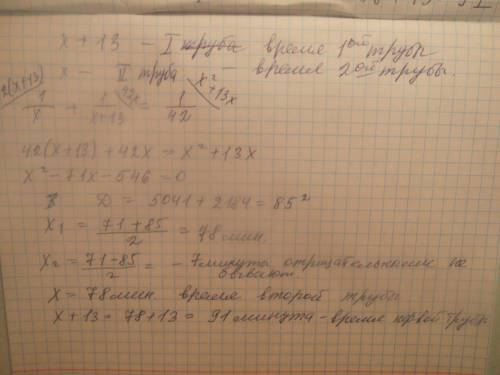 x + 13 – I труба время 1ой трубы
x – II труба – время 2ой трубы.
42(x+13) 42x x² + 13x
1/x + 1/(x+13) = 1/42
42(x+13) + 42x = x² + 13x
x² – 71x – 546 = 0
D = 5041 + 2184 = 85²
x₁ = (71 + 85)/2 = 78 мин.
x₂ = (71 – 85)/2 = – 7 минута отрицательными не бывают
x = 78 мин. время второй трубы
x + 13 = 78 + 13 = 91 минута – время первой трубы